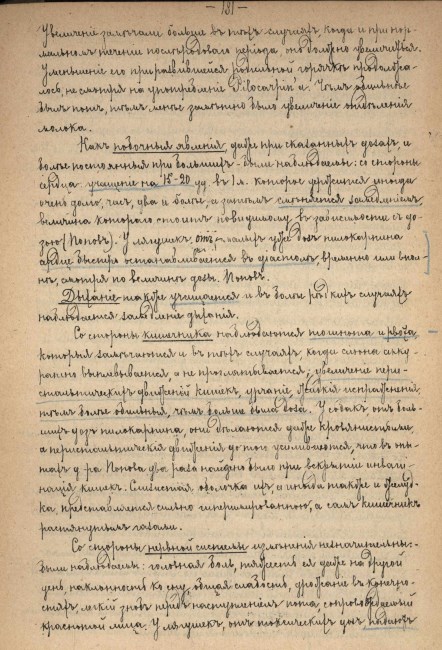 — 131 —
Увеличеніе замѣчали больше въ тѣхъ случаяхъ когда и при нор-
мальномъ теченіи послѣродоваго періода, оно должно увеличиться.
Уменьшеніе его при развившейся родильной горячкѣ продолжа-
лось, не смотря на употребленіе Pilocarpin'а. Чѣмъ сильнѣе
былъ потъ, тѣмъ менѣе замѣтно было увеличеніе отдѣленія
молока.
Какъ побочныя явленія даже при сказанныхъ дозахъ, и
болѣе постоянныя при большихъ – были наблюдаемы: со стороны
сердца учащеніе на 15-20 уд. въ 1 м. которое держится иногда
очень долго, часъ, два и болѣе, а затѣмъ смѣняется замедленіемъ,
величина котораго стоитъ повидимому, въ зависимости съ до-
зою (Поповъ). У лягушекъ отъ малыхъ даже дозъ пилокарпина
сердце быстро останавливается въ діастолѣ, временно или впол-
нѣ, смотря по величинѣ дозы. Поповъ.
Дыханіе также учащается и въ болѣе рѣдкихъ случаяхъ
наблюдается замедленіе дыханія.
Со стороны кишечника наблюдаются тошнота и рвота
которыя замѣчаются и въ тѣхъ случаяхъ, когда слюна акку-
ратно выплевывается, а не проглатывается; увеличеніе пери-
стальтическихъ движеній кишекъ, урчаніе, жидкія испражненія
тѣмъ болѣе обильныя, чѣмъ больше была доза. У собакъ отъ боль-
шихъ дозъ пилокарпина они дѣлаются даже кровянистыми,
а перистальтическія движенія до того усиливаются, что въ опы-
тахъ д-ра Попова два раза найдено было при вскрытіи инваги-
нація кишекъ. Слизистая оболочка ихъ, а иногда также и желуд-
ка, представляется сильно гиперемированною, а самъ кишечникъ
растянутымъ газами.
Со стороны нервной системы измѣненія незначительны:
были наблюдаемы: головная боль, тяжесть ея даже на другой
день, наклонность ко сну, общая слабость, дрожаніе въ конечно-
стяхъ, легкій знобъ передъ наступленіемъ пота, сопровождаемый
краснотой лица. У лягушекъ, отъ токсическихъ дозъ падаютъ